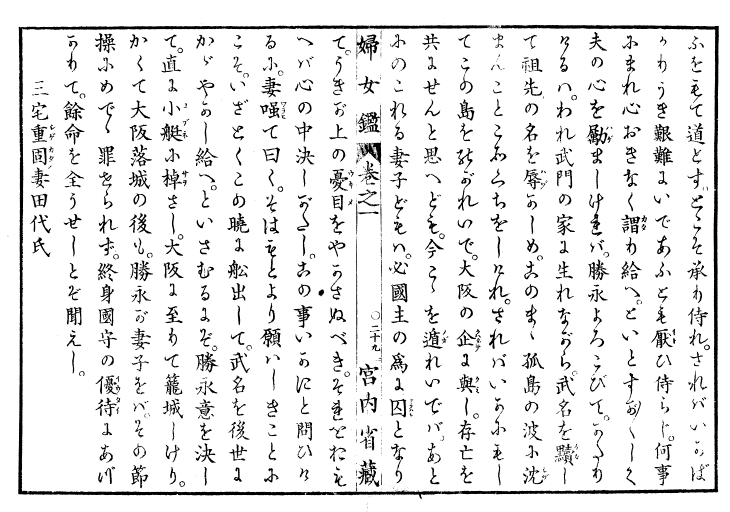 ふをもて道とす。とこそ承わ侍れ。されバいかば
かりうき艱難にいであふとも厭ひ侍らじ。何事
にまれ心おきなく謂り給へ。といとすなくしく
夫の心を勵ましけれバ。勝永よろこびて。かたり
けるハ。われ武門の家に生れながら。武名を黷し
て祖先の名を辱かしめ。このまゝ孤島の波に沈
まんことこゝろくちをしけれ。さればいかにもし
てこの島をのがれいで。大阪の企に與し。存亡を
共にせんと思へども。今こゝを遁れいでバ。あと
にのこれる妻子どもハ。必國主の爲に囚となり
婦女鑑 卷之一 〇二十九 宮内省藏
て。うきが上の憂目をやかさぬべき。それをおも
へバ心の中決しがたし。この事いかにと問ひけ
るに。妻嗤て曰く。そはもとより願ハしきことに
こそ。いざとくこの曉に舩出して。武名を後世に
かゞやかし給へ。といさむるにぞ。勝永意を決し
て。直に小艇に棹さし。大阪に至りて籠城しけり。
かくて大阪落城の後も。勝永が妻子をバ。その節
操にめでゝ罪せられず。終身國守の優待にあづ
かりて。餘命を全うせしとぞ聞えし。
三宅重固妻田代氏